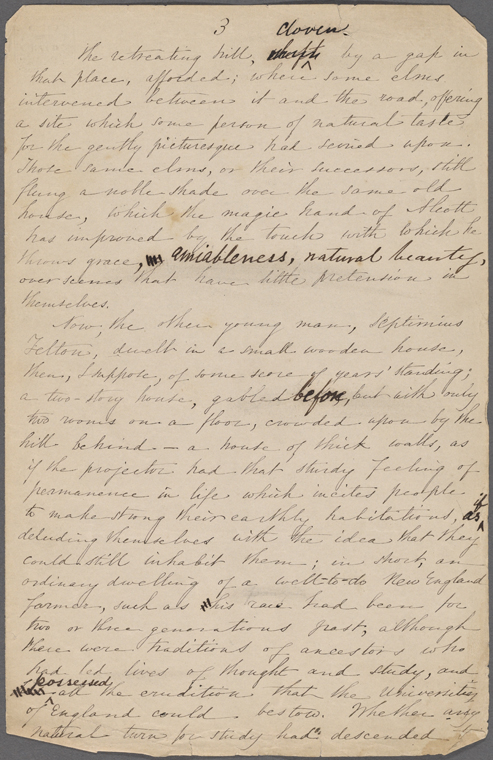 3
cloven
The retreating hill, by a gap in
that place, afforded; where some elms
intervened between it and the road, offering
a site which some person of natural taste
for the gently picturesque had seized upon.
Those same elms, or their successors, still
flung a noble shade over the same old
house, which the magic hand of Alcott
has improved by the touch with which he
throws grace, amiableness, natural beauty,
over scenes that have little pretension in
themselves.
Now, the other young man, Septimius
Felton, dwelt in a small wooden house,
then, I suppose, of some score of years' standing;
a two-story house, gabled before, but with only
two rooms on a floor, crowded upon by the
hill behind – a house of thick walls, as
if the projector had that sturdy feeling of
permanence in life which incites people
to make strong their earthly habitations, as if
deluding themselves with the idea that they
could still inhabit them; in short, an
ordinary dwelling of a well-to-do New England
farmer, such as his race had been for
two or three generations past, although
there were traditions of ancestors who
had led lives of thought and study, and
possessed
all the erudition that the Universities
of England could bestow. Whether any
natural turn for study had descended to